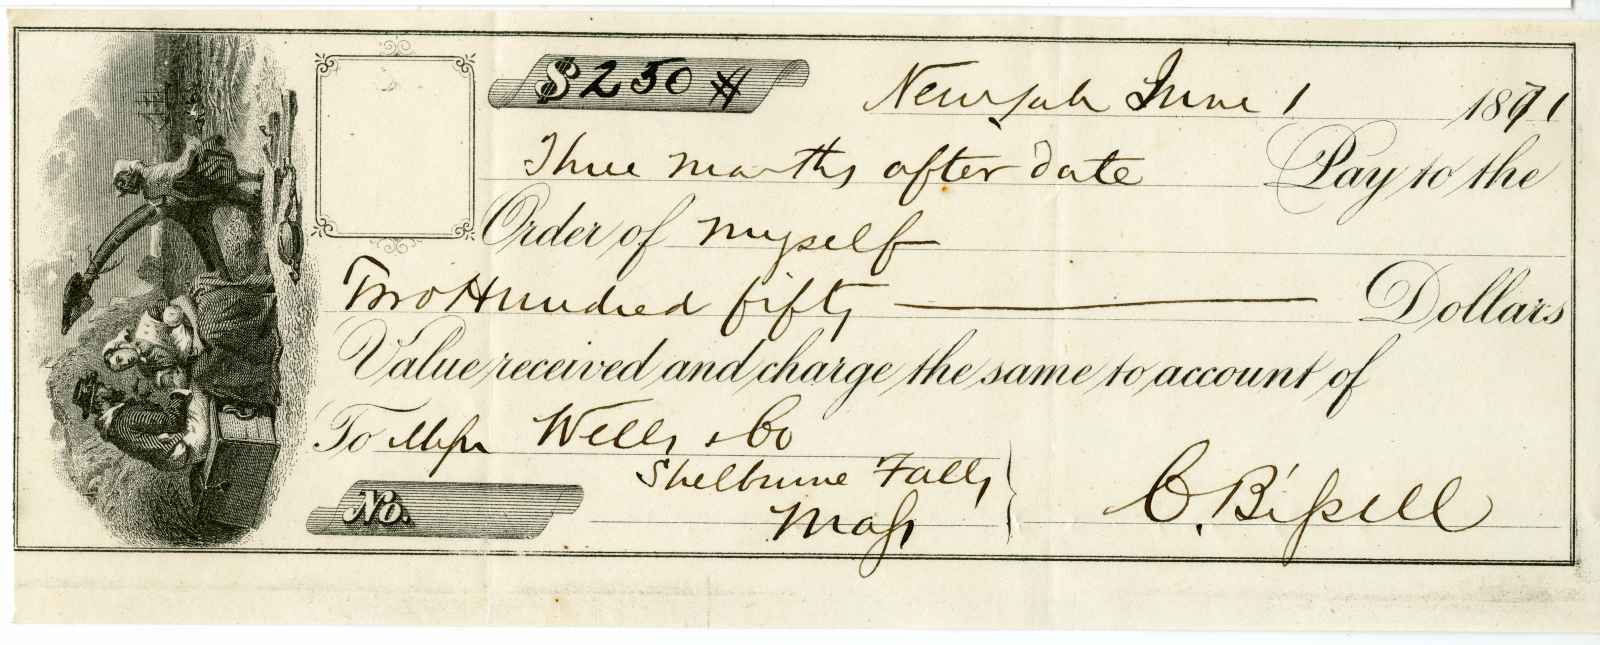 $250 New York June 1 1871
Three months after date Pay to the
Order of myself
Two Hundred fifty Dollars
Value received and charge the same to account of
To Messrs Wells & Co
Shelburne Falls
Mass
C. Bissell
No.